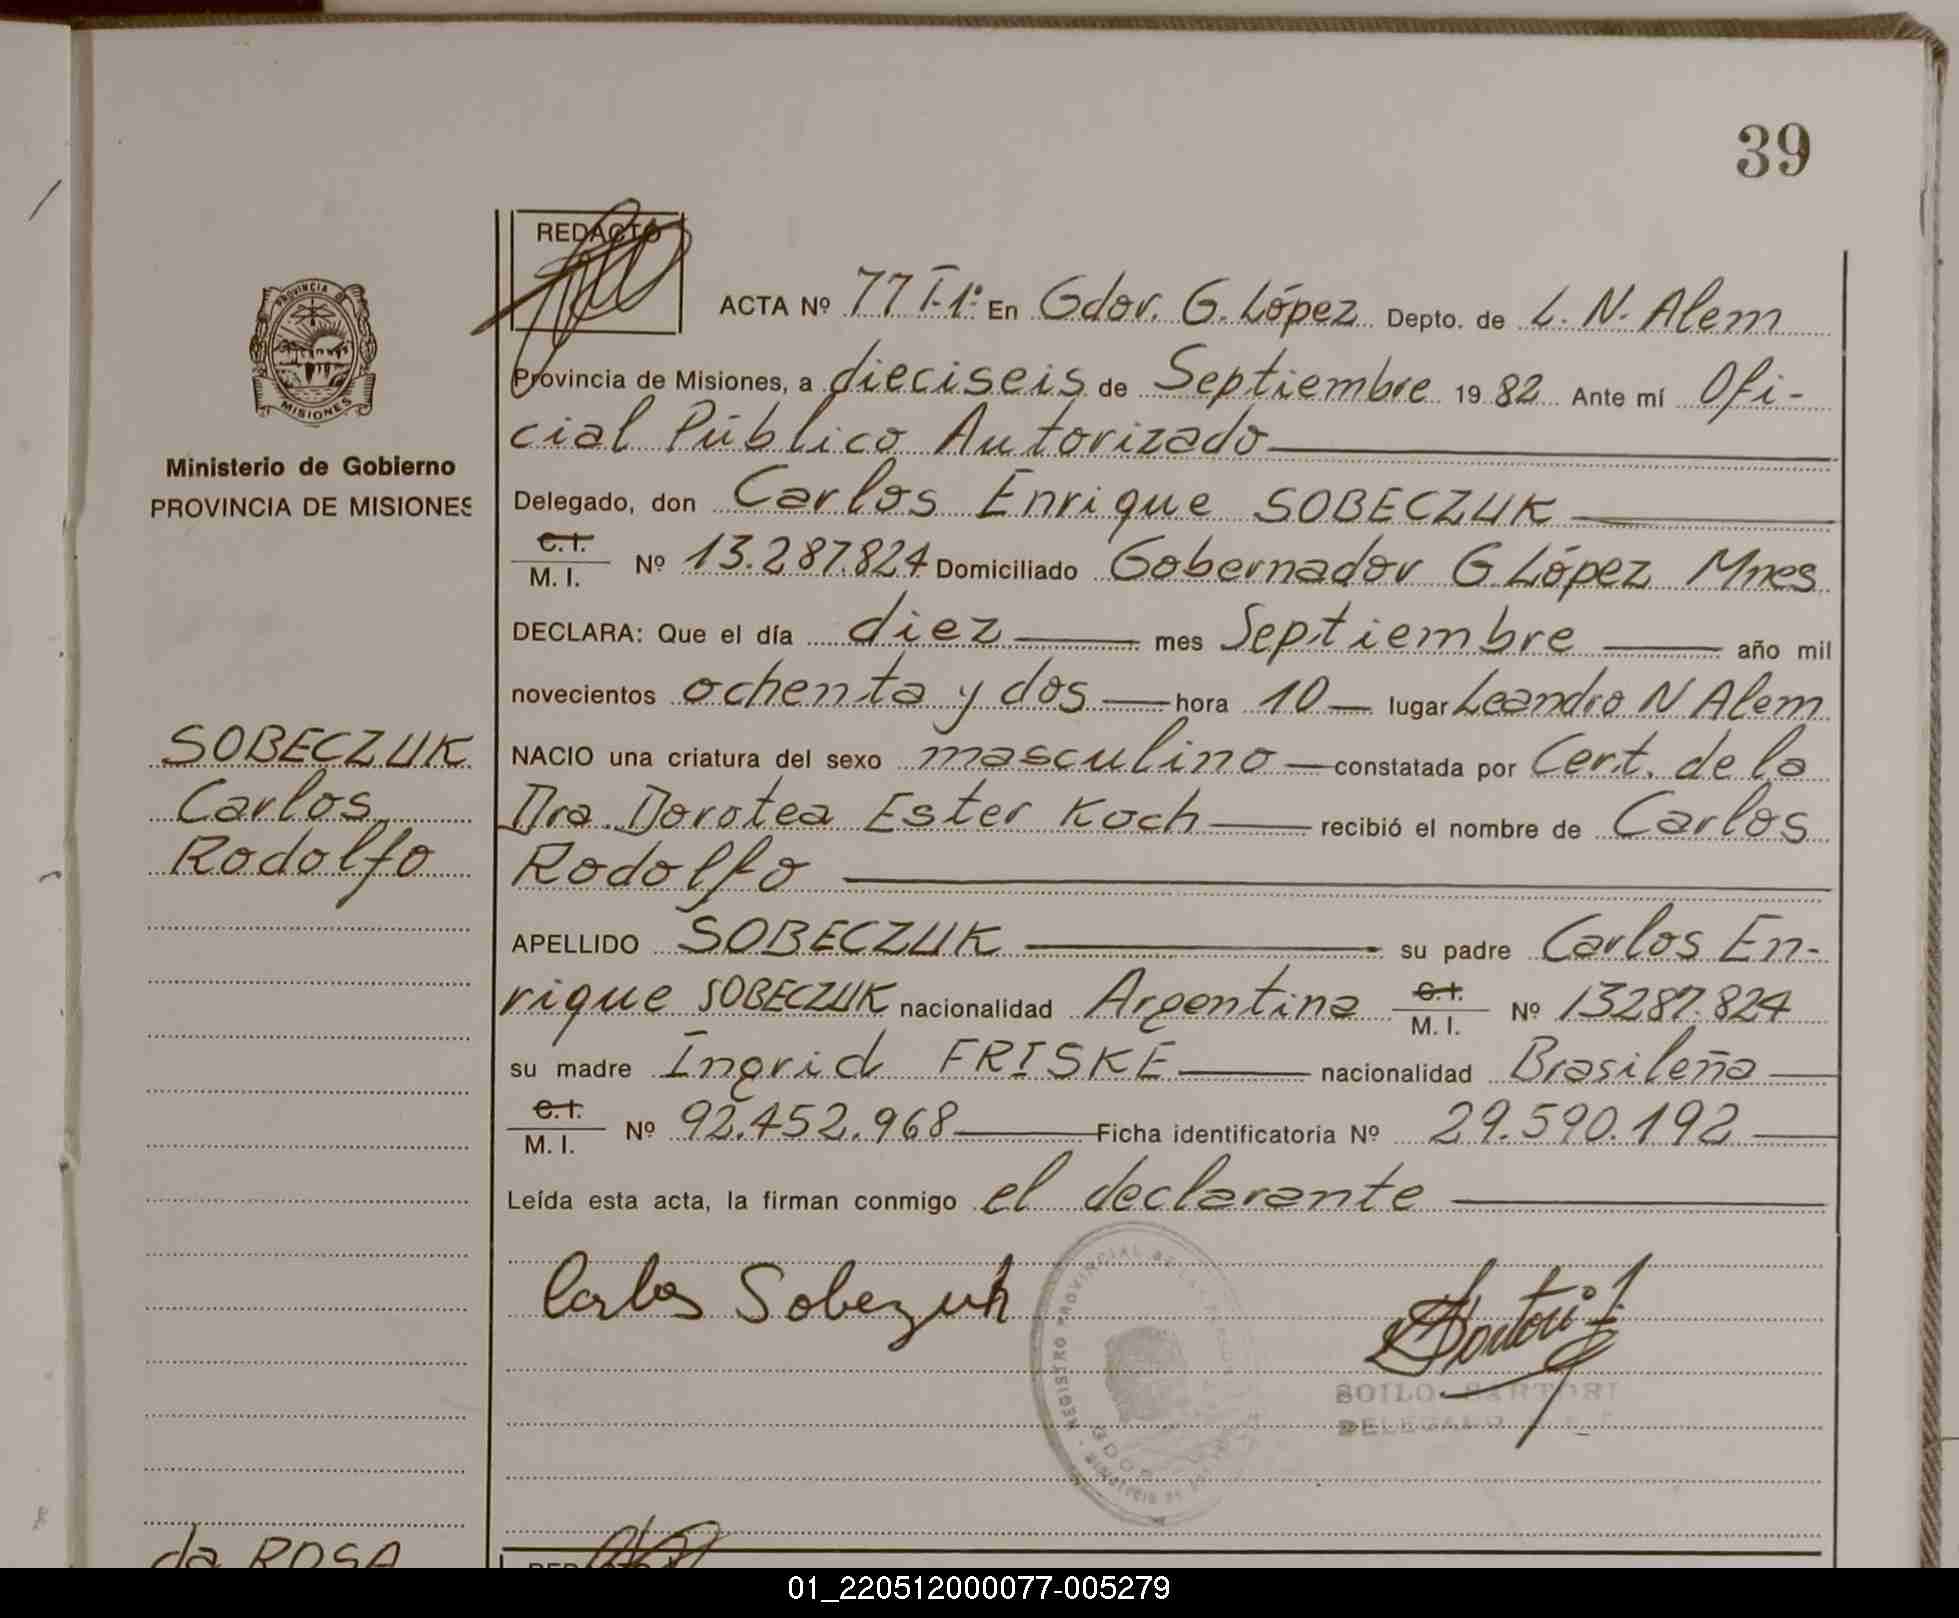 39
REDACTO
ACTA Nº 77 T.1º En Gdor. G. López Depto. de L. N. Alem
Provincia de Misiones, a dieciseis de Septiembre 19 82 Ante mí Ofi-
cial Público Autorizado
PROVINCIA DE
MISIONES
Ministerio de Gobierno
PROVINCIA DE MISIONES
Delegado, don Carlos Enrique SOBECZUK
C. I.
M. I. Nº 13.287.824 Domiciliado Gobernador G López Mnes
DECLARA: Que el día diez mes Septiembre año mil
novecientos ochenta y dos hora 10 lugar Leandro N Alem
SOBECZUK
Carlos
Rodolfo
NACIO una criatura del sexo masculino constatada por Cert. de la
Dra. Dorotea Ester Koch recibió el nombre de Carlos
Rodolfo
APELLIDO SOBECZUK su padre Carlos En-
rique SOBECZUK nacionalidad Argentina C. I. M. I. Nº 13287.824
su madre Ingrid FRISKE nacionalidad Brasileña
C. I.
M. I. Nº 92.452.968 Ficha identificatoria Nº 29.590.192
Leída esta acta, la firman conmigo el declarante
Carlos Sobezuk
REGISTRO PROVINCIAL DE LA
GDOR
SOILO SARTORI
DELEGADO
da ROSA
REDACTO
01_220512000077-005279